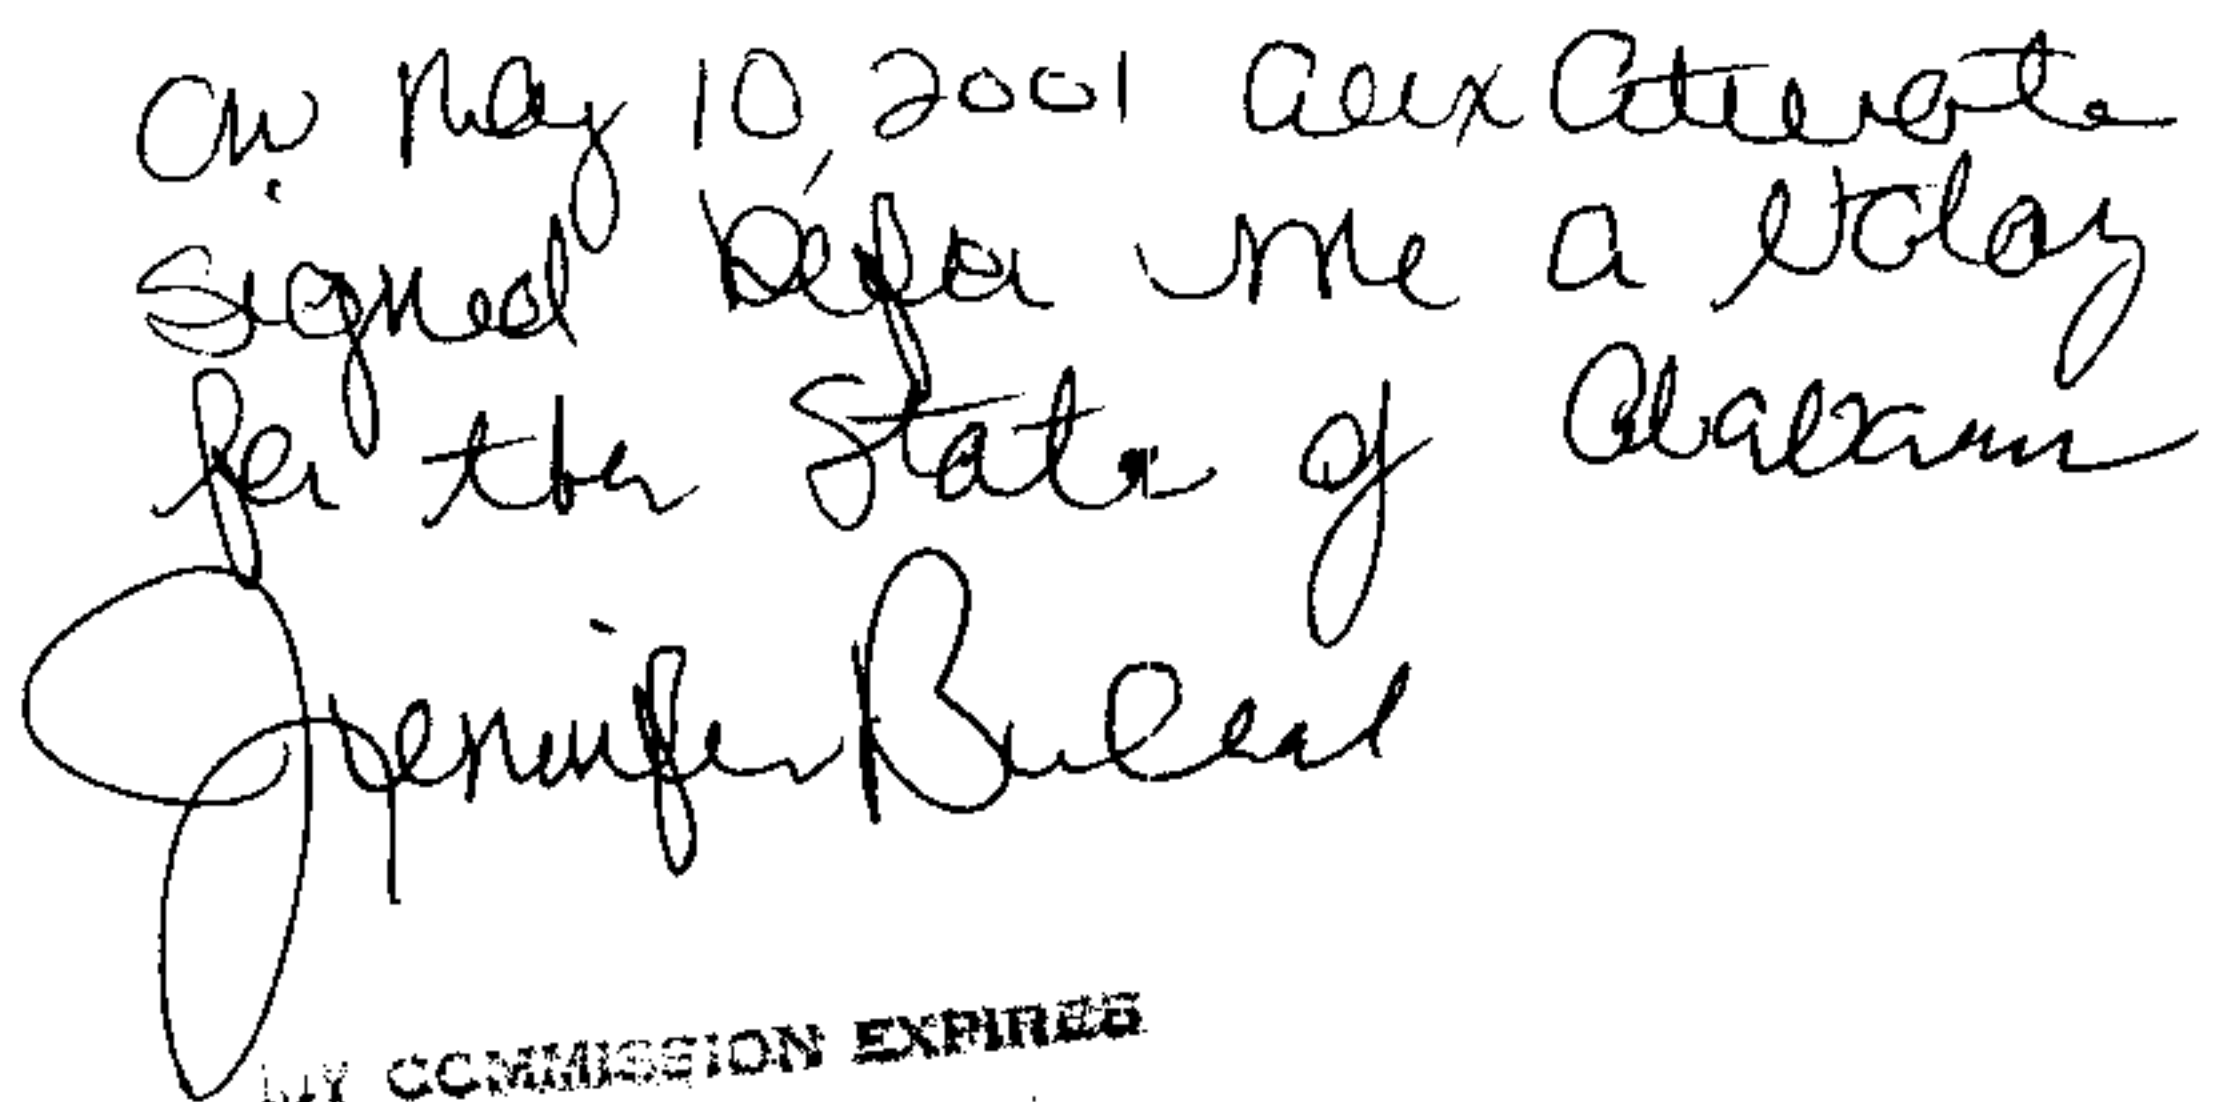 On May 10, 2001 Alex
signed before me a Notary
for the State of Alabama
Jennifer
MY COMMISSION EXPIRES